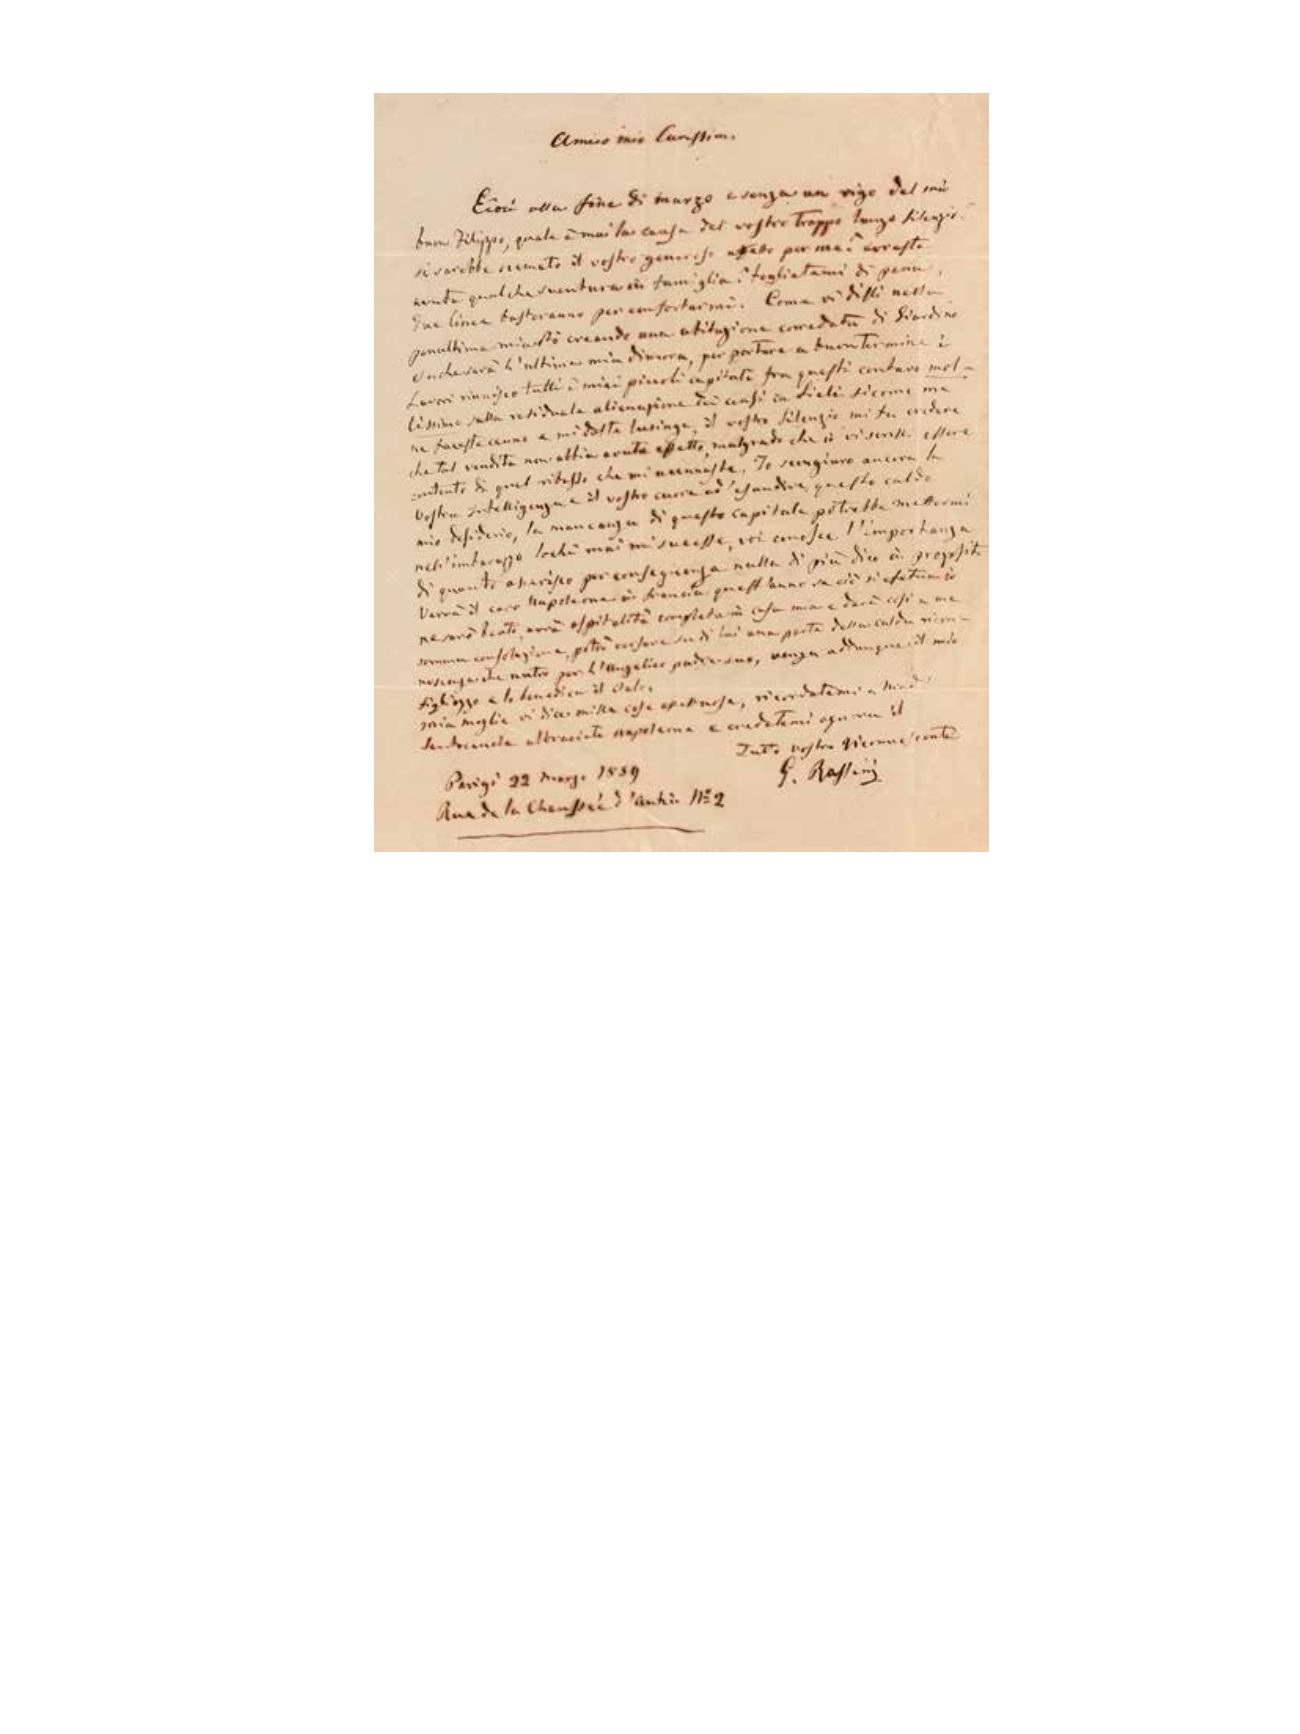 Amico mio Carissimo
Eccoci alla fine di marzo e senza un rigo del mio
buon Filippo, quale è mai la causa del vostro troppo lungo silenzio?
si sarebbe scemato il vostro generoso affetto per me? avreste
avuta qualche sventura in famiglia? toglietemi di pena,
due linee basteranno per confortarmi. Come vi dissi nella
penultima mia stò creando una abitazione corredata di Giardino
che sarà l'ultima mia dimora, per portare a buon termine i
Lavori riunisco tutti i miei piccoli capitali fra questi contavo mol-
tissimo sulla residuale alienazione dei censi in siccome me
ne faceste cenno e mi daste lusinga, il vostro silenzio mi fa credere
che tal vendita non abbia avuta effetto, malgrado che io vi scrissi essere
contento di quel ribasso che mi accennaste. Io scongiuro ancora la
vostra intelligenza e il vostro cuore ad esaudire questo caldo
mio desiderio, la mancanza di questo capitale potrebbe mettermi
nell'imbarazzo locchè mai mi successe, voi conosce l'importanza
di quanto asserisco per conseguenza nulla di più dico in proposito
Verrà il caro Napoleone in francia quest'anno? se ciò si efetua io
ne sarò beato, avrà ospitalità completa in casa mia e darà così a me
somma consolazione, potrò versare su di lui una parte della calda ricon-
noscenza che nutro per l'Angelico padre suo, venga addunque il mio
figliozzo e lo benedica il Cielo.
mia moglie vi dice mille cose affettuose, ricordatemi a
abbracciate Napoleone e credetemi ognora il
Tutto vostro Riconoscente
G. Rossini
Parigi 22 Marzo 1859
Rue de la Chaussée d'Antin N° 2